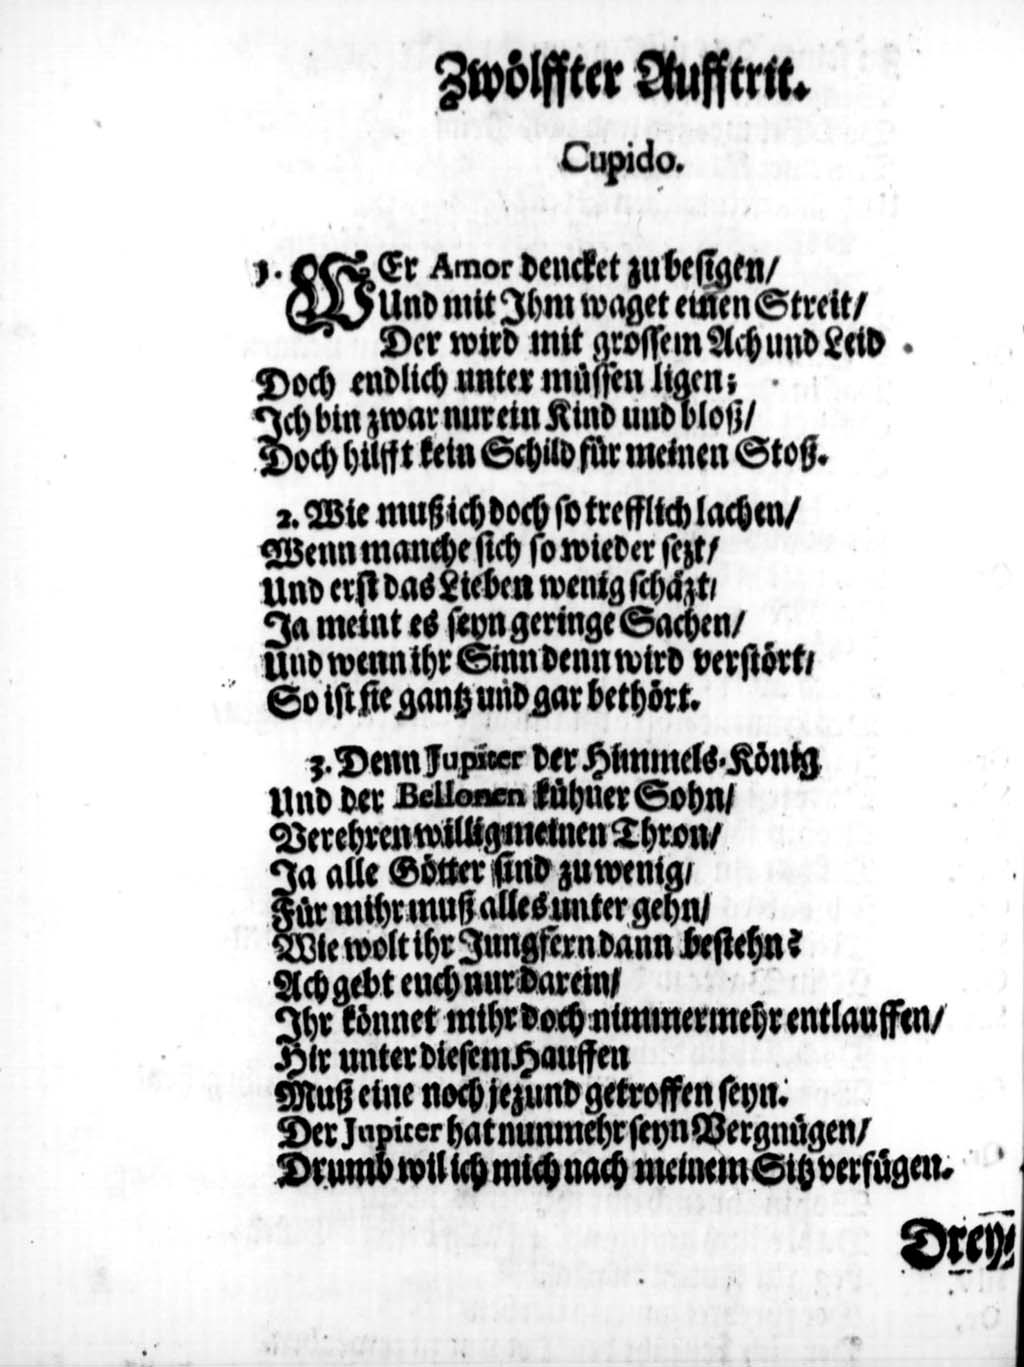 Zwölffter Aufftrit.
Cupido.
1. WEr Amor dencket zu besigen/
Und mit Ihm waget einen Streit/
Der wird mit grossem Ach und Leid
Doch endlich unter müssen ligen;
Ich bin zwar nur ein Kind und bloß/
Doch hilfft kein Schild für meinen Stoß.
2. Wie muß ich doch so trefflich lachen/
Wenn manche sich so wieder sezt/
Und erst das Lieben wenig schäzt/
Ja meint es seyn geringe Sachen/
Und wenn ihr Sinn denn wird verstört/
So ist sie gantz und gar bethört.
3. Denn Jupiter der Himmels-König
Und der Bellonen kühner Sohn/
Verehren willig meinen Thron/
Ja alle Götter sind zu wenig/
Für mihr muß alles unter gehn/
Wie wolt ihr Jungfern dann bestehn?
Ach gebt euch nur darein/
Ihr könnet mihr doch nimmermehr entlauffen/
Hir unter diesem Hauffen
Muß eine noch jezund getroffen seyn.
Der Jupiter hat nunmehr seyn Vergnügen/
Drumb wil ich mich nach meinem Sitz verfügen.
Drey-